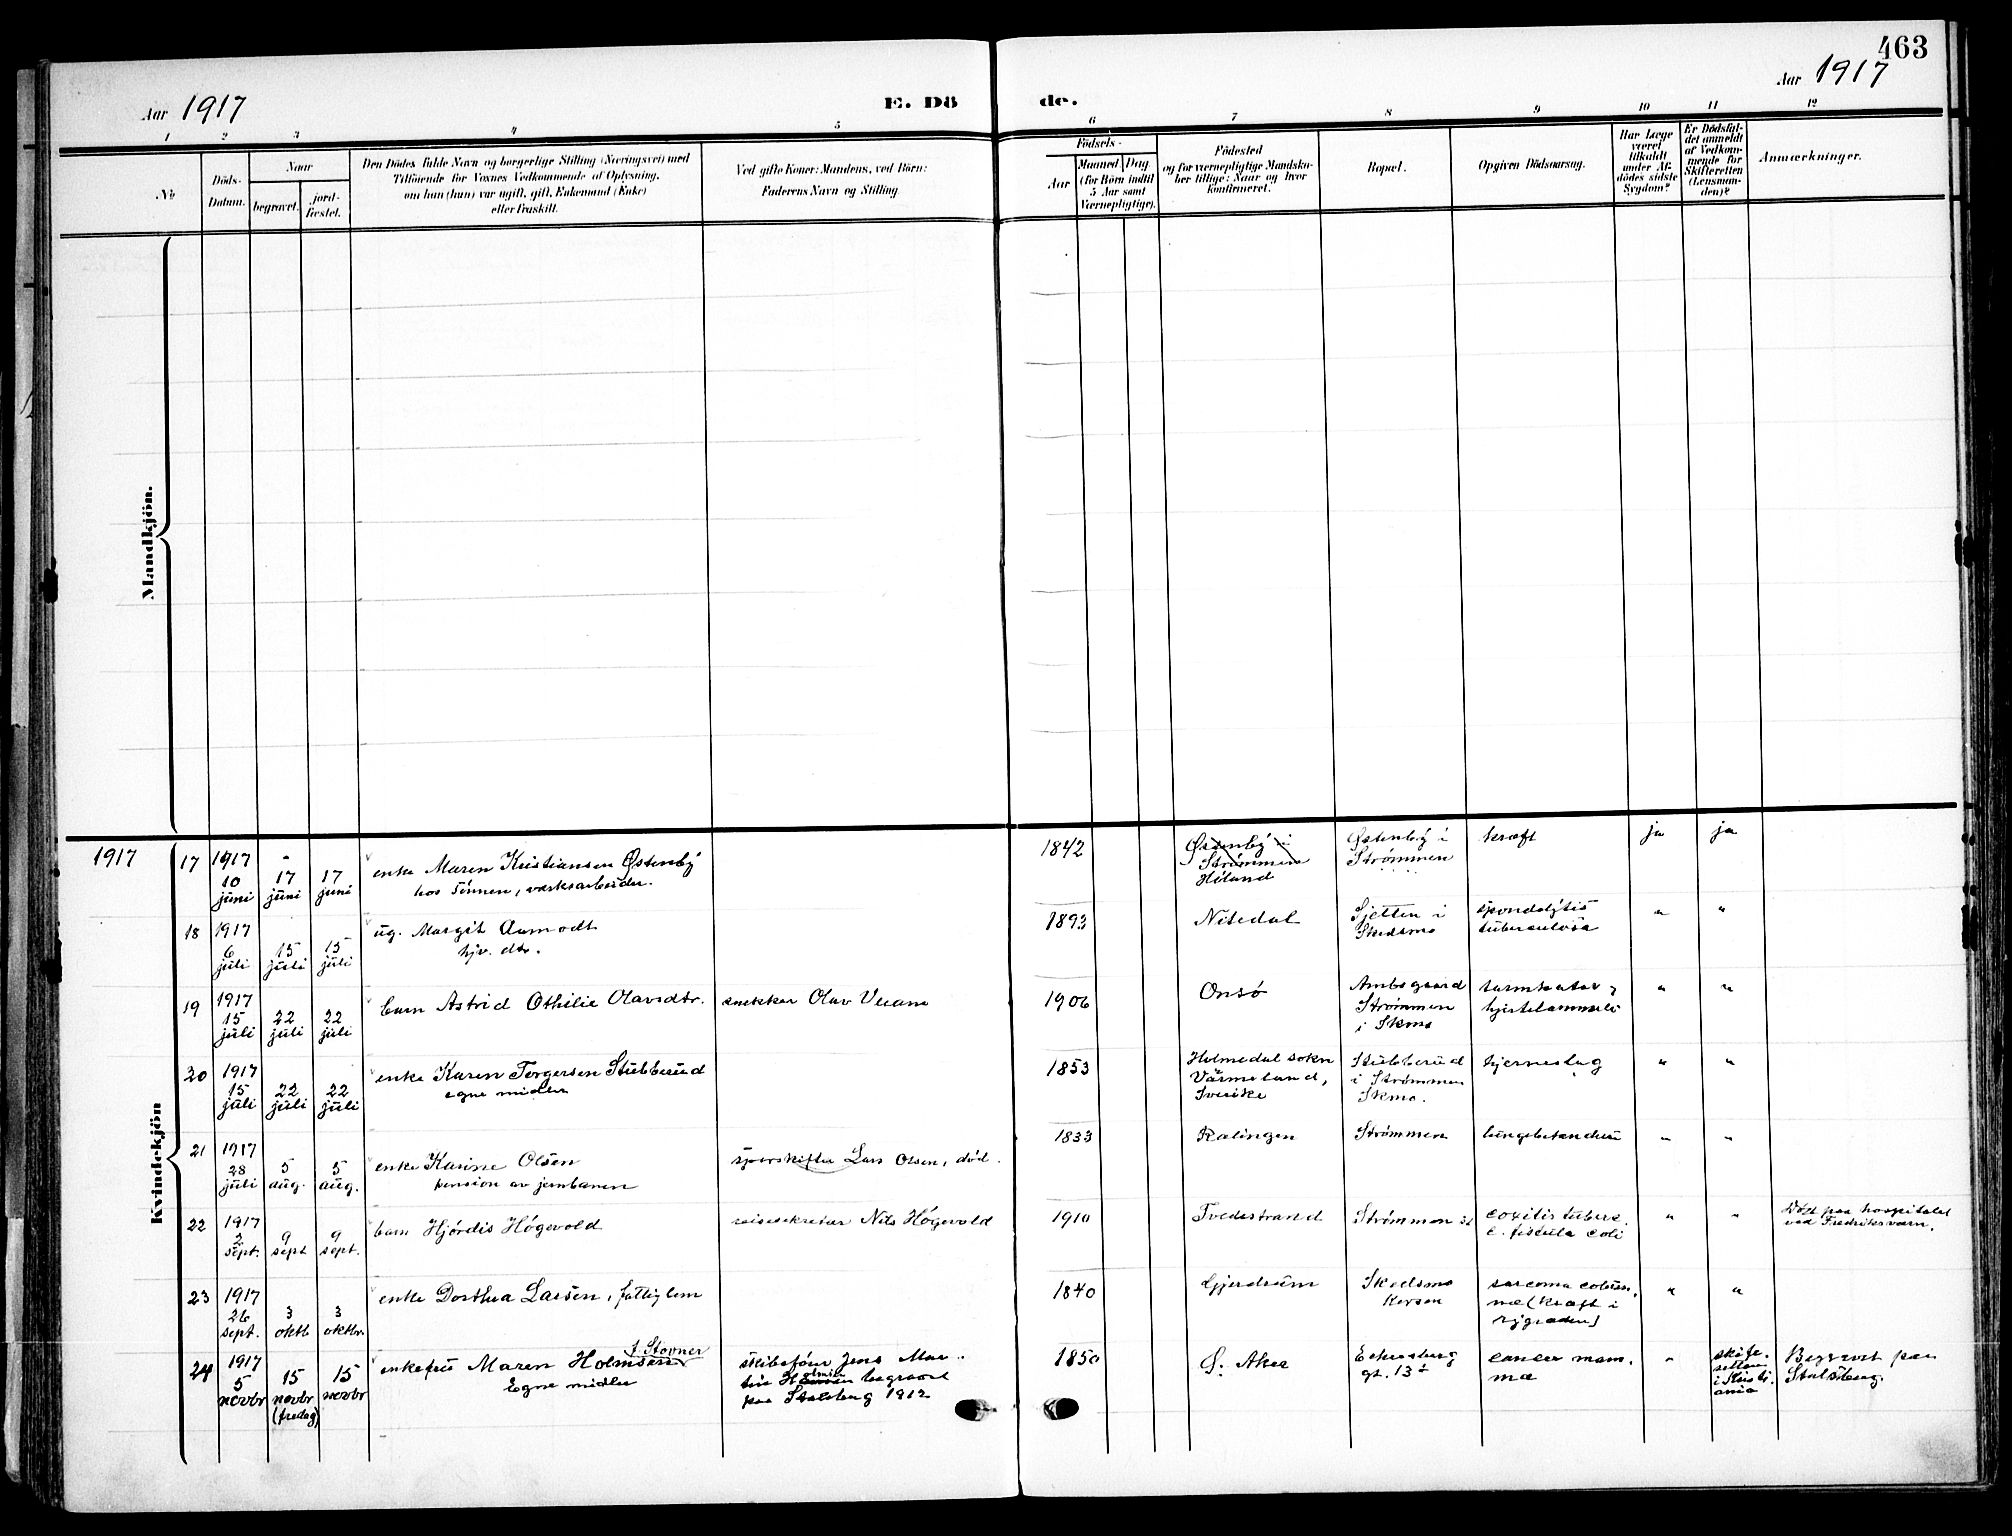 463
Aar 1917
E. Dö
de.
Aar 1917
1 2 3 4 5 6 7 8 9 10 11 12
No
Döds-
Datum.
Naar
begravet.
jord-
fæstet.
Den Dödes fulde Navn og borgerlige Stilling (Næringsvei) med
Tilföiende för Voxnes Vedkommende af Oplysning,
om han (hun) var ugift, gift, Enkemand (Enke)
eller fraskilt.
Ved gifte Koner: Mandens, ved Börn:
Faderens Navn og Stilling.
Födsels-
Aar
Maaned
Dag
(for Börn indtil
5 Aar samt
Værnepligtige).
Födested
og for værnepligtige Mandska-
ber tillige: Naar og hvor
konfirmeret.
Bopæl.
Opgiven Dödsaarsag.
Har Læge
været
tilkaldt
under Af-
dödes sidste
Sygdom?
Er Dödsfal-
det anmeldt
af Vedkom-
mende for
Skifteretten
(Lensman-
den)?
Anmærkninger.
Mandkjön.
Kvindekjön
1917
17
1917
10
juni
17
juni
17
juni
enke Maren Kristiansen Østenbÿ
hos sönnen, værksarbeider.
1842
Østenbÿ i
Strømmen
Høland
Østenbÿ i
Strømmen
kræft
ja
ja
18
1917
6
juli
15
juli
15
juli
ug. Margit Aamodt
hjv. dtr.
1893
Nitedal
Sjetten i
Skedsmo
spondolÿtis
tuberculosa
"
"
19
1917
15
juli
22
juli
22
juli
barn Astrid Othilie Olavsdtr.
snekker Olav Veum
1906
Onsö
Strømmen
i Skmo
tarmkatar,
hjertelammelse
"
"
20
1917
15
juli
22
juli
22
juli
enke Karen Torgersen Stubberud
egne midler
1853
Holmedal sokn
Värmeland,
Sverike
Stubberud
i Strømmen
Skmo.
hjerneslag
"
"
21
1917
28
juli
5
aug.
5
aug.
enke Karine Olsen
pension av jernbanen
sporskifter Lars Olsen, död.
1833
Rælingen
Strømmen
lungebetændelse
"
"
22
1917
2
sept.
9
sept
9
sept.
barn Hjördis Högevold
reisesekretær Nils Högevold
1910
Tvedestrand
Strømmen st
coxitis tuberc.
c. fistula coli
"
"
Död paa hospitalet
ved Fredriksværn.
23
1917
26
sept.
3
oktb
3
oktbr.
enke Dorthea Larsen, fattiglem
1840
Gjerdrum
Skedsmo
Korsen
sarcoma colum-
næ (kræft i
rÿgraden)
"
"
24
1917
5
novbr
15
novbr
(fredag)
15
novbr
f. Stovner
enkefru Maren Holmsen
Egne midler
skibsförer Jens Mar-
tin begravet
paa Stalsberg 1912
1850
Ø. Aker
Eckersberg
gt. 13
cancer mam-
mæ
"
skifte-
retten
i Kristi-
ania
Begravet paa
Stalsberg.